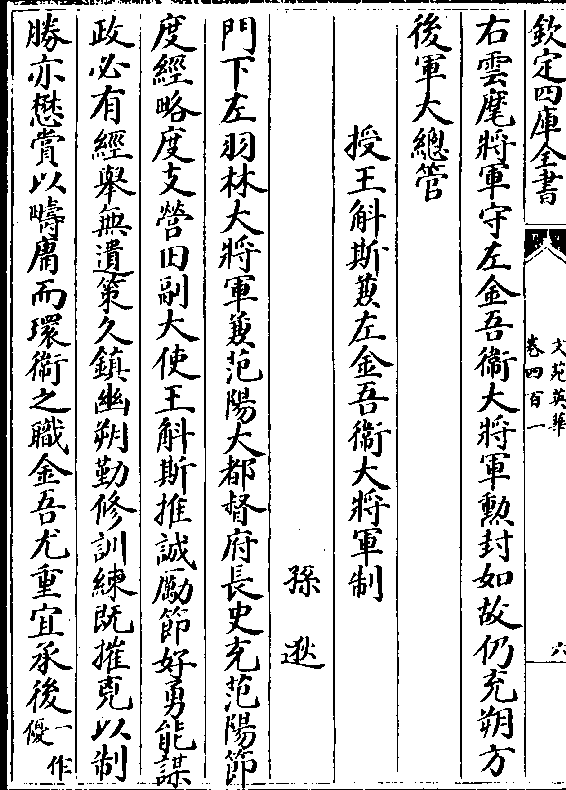 欽定四庫全書
文苑英華
卷四百一
六
右雲麾將軍守左金吾衞大將軍勲封如故仍充朔方
後軍大總管
授王斛斯兼左金吾衞大將軍制
孫逖
門下左羽林大將軍兼范陽大都督府長史充范陽節
度經略度支營田副大使王斛斯推誠勵節好勇能謀
政必有經舉無遺策久鎮幽朔勤修訓練既摧兇以制
勝亦懋賞以疇庸而環衞之職金吾尤重宜承後一作優